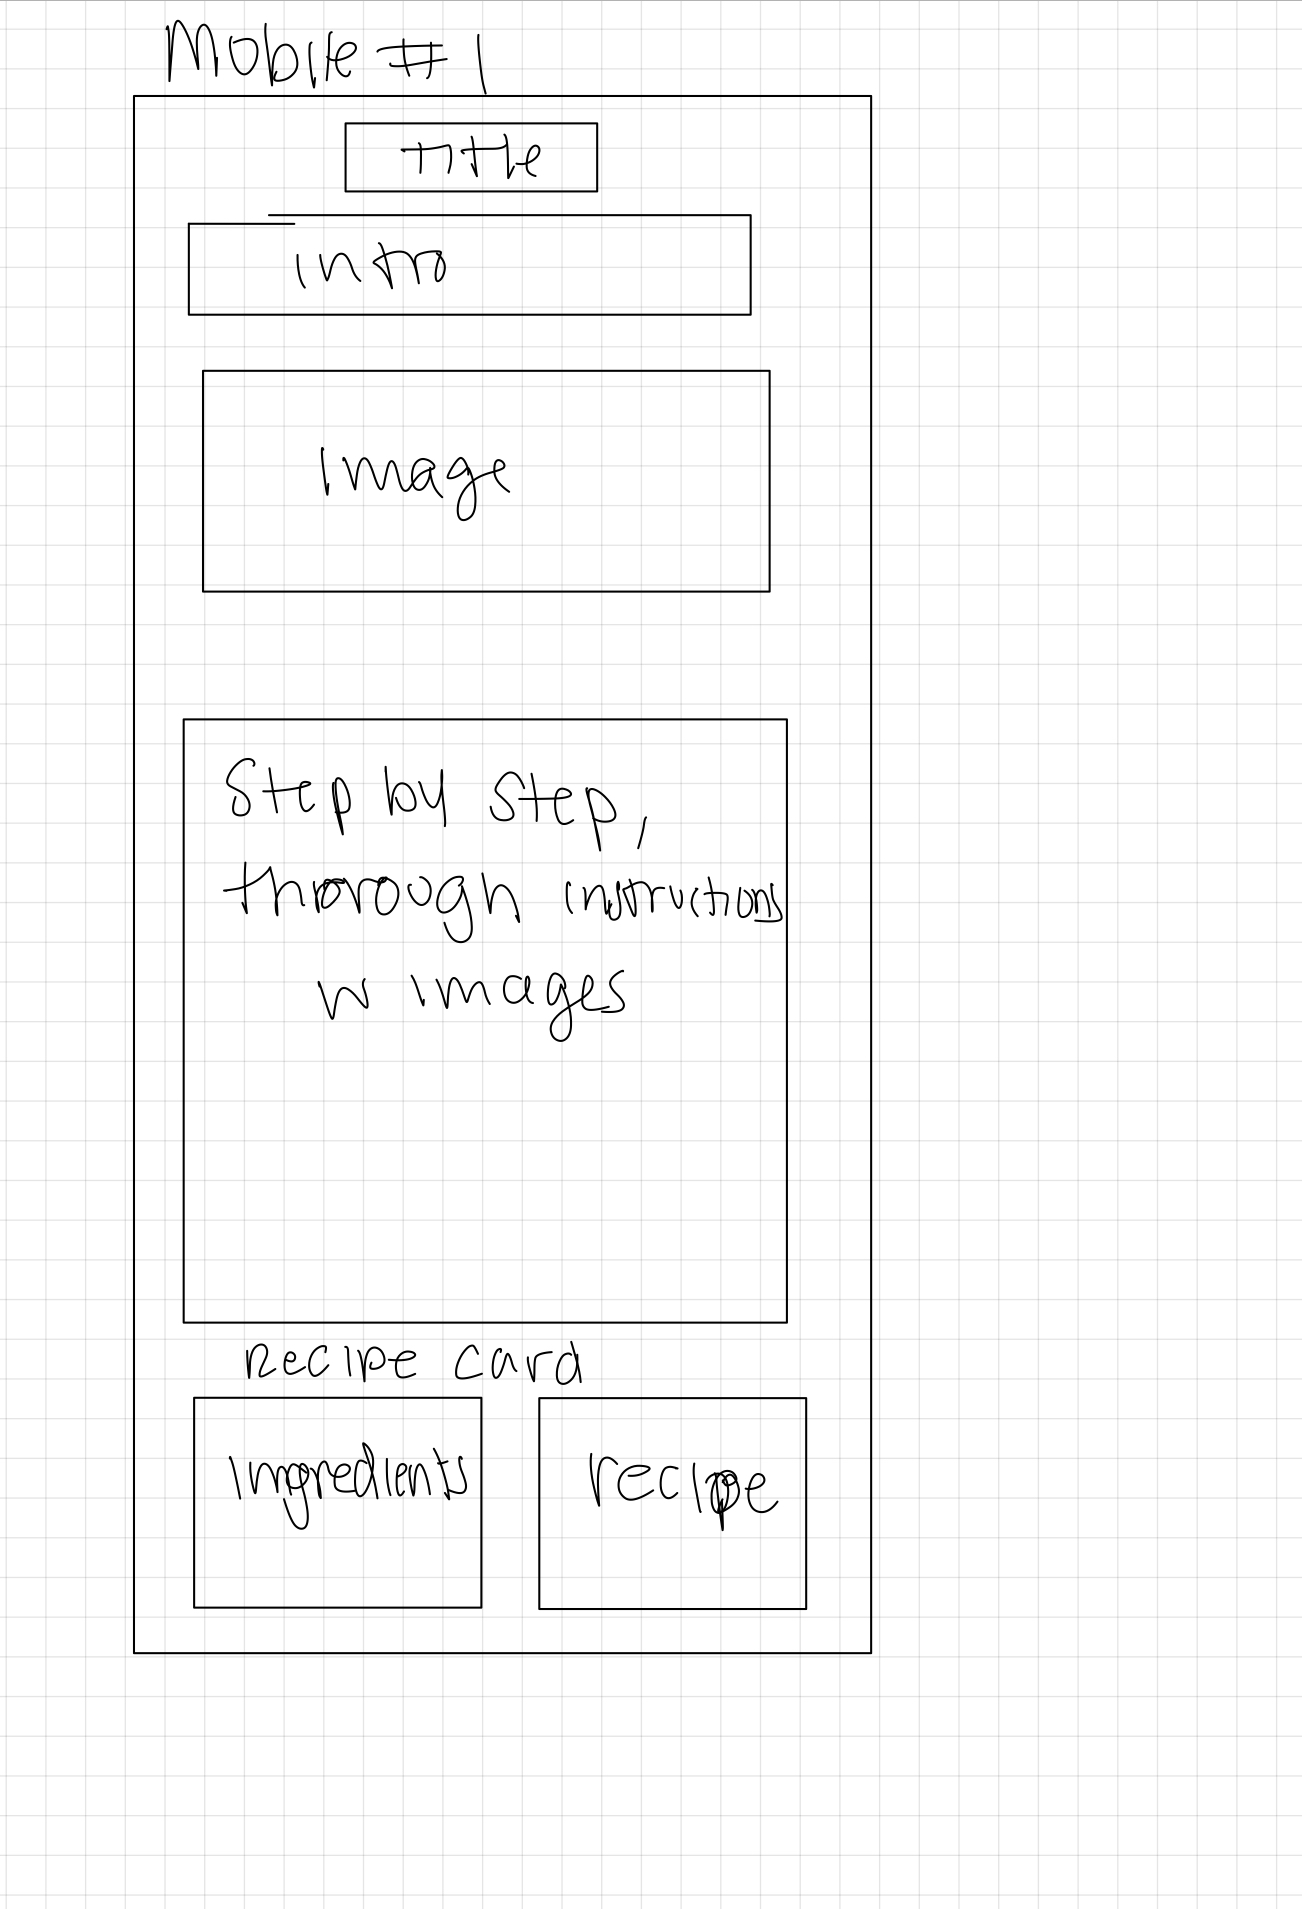 Mobile #1
Title
intro
Image
Step by step,
thorough instructions
w images
Recipe card
Ingredients
recipe